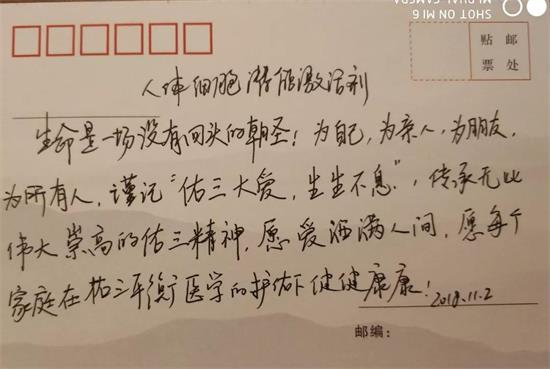 SHOT ON MI 6
MI DUAL CAMERA
贴 邮
票 处
人体细胞潜能激活剂
生命是一场没有回头的朝圣!为自己,为亲人,为朋友,
为所有人,谨记“佑三大爱,生生不息”,传承无比
伟大崇高的佑三精神,愿爱洒满人间,愿每个
家庭在佑三平衡医学的护佑下健健康康!
2018.11.2
邮编: